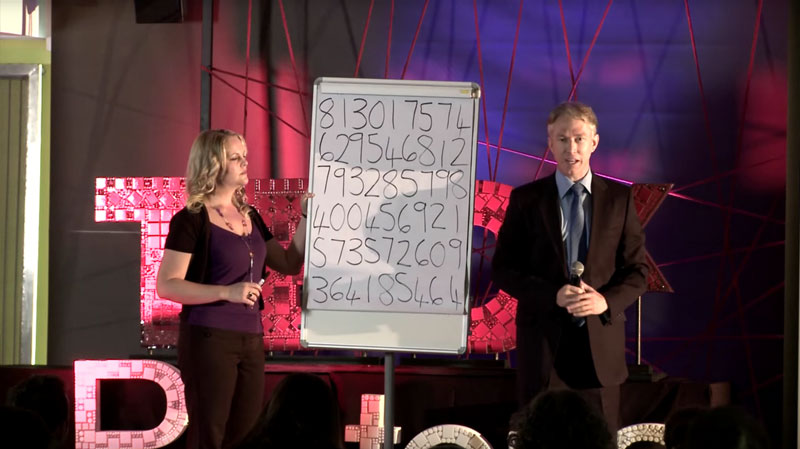 813017574
629546812
793285798
400456921
573572609
364185464